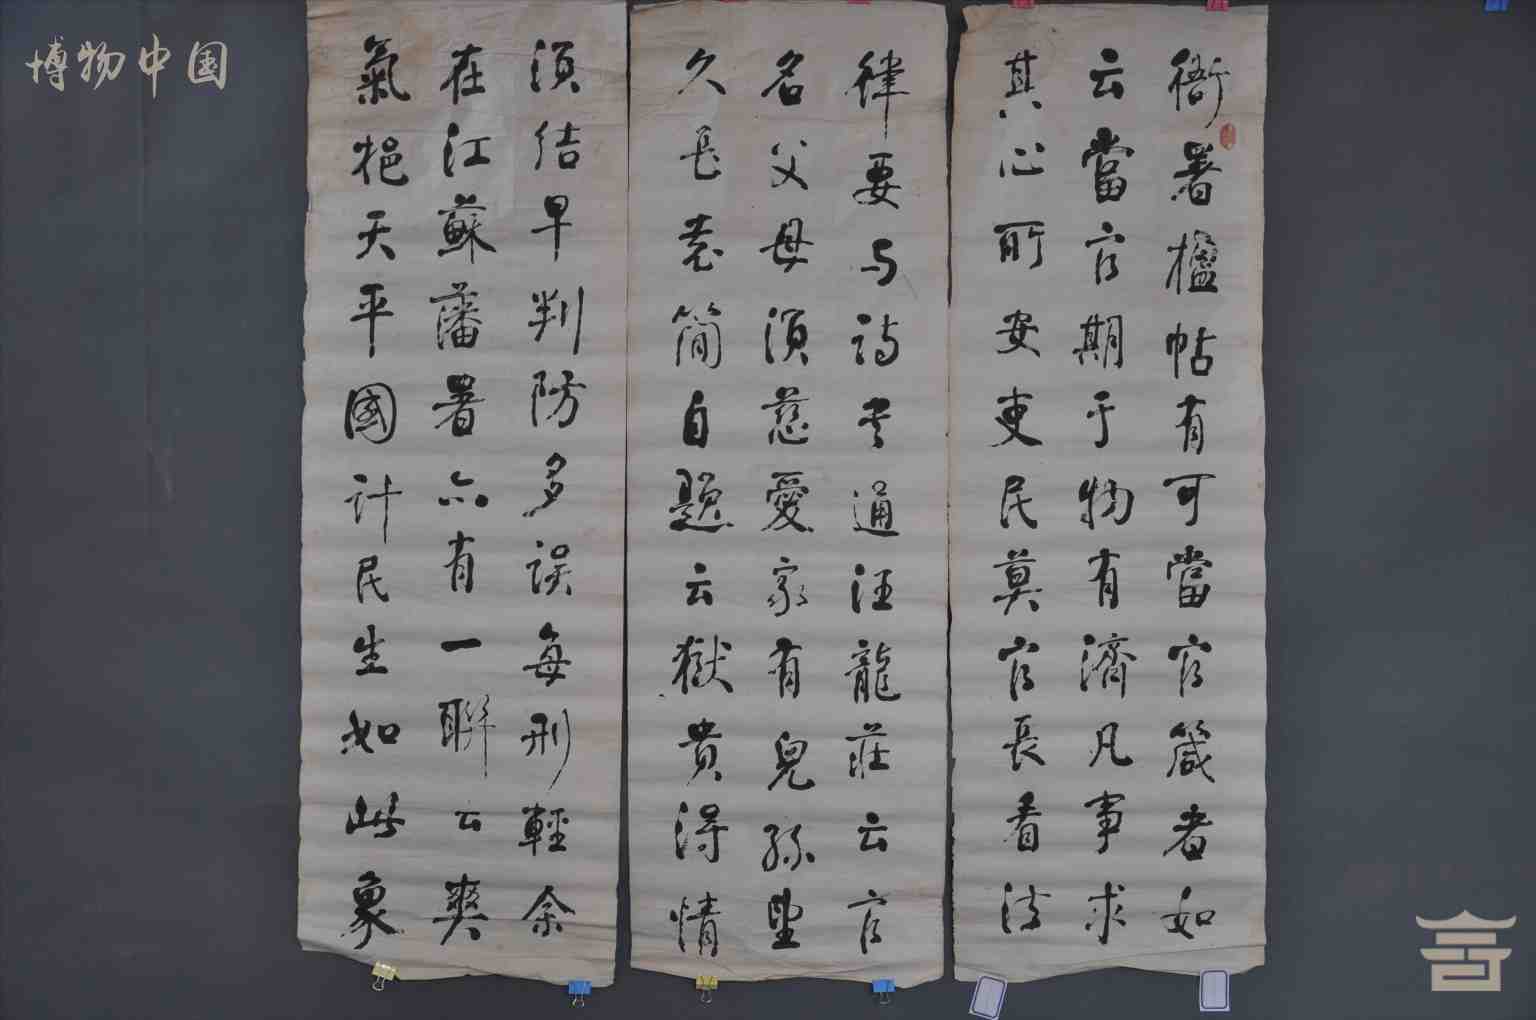 博物中国
衙署楹帖有可當官箴者如
云當官期于物有濟凡事求
其心所安吏民莫官長看法
律要与詩書通汪龍莊云官
名父母須慈愛家有兒孫望
久長袁簡自題云獄貴得情
須結早判防多誤每刑輕余
在江蘇藩署亦有一聯云爽
氣挹天平國計民生如此象